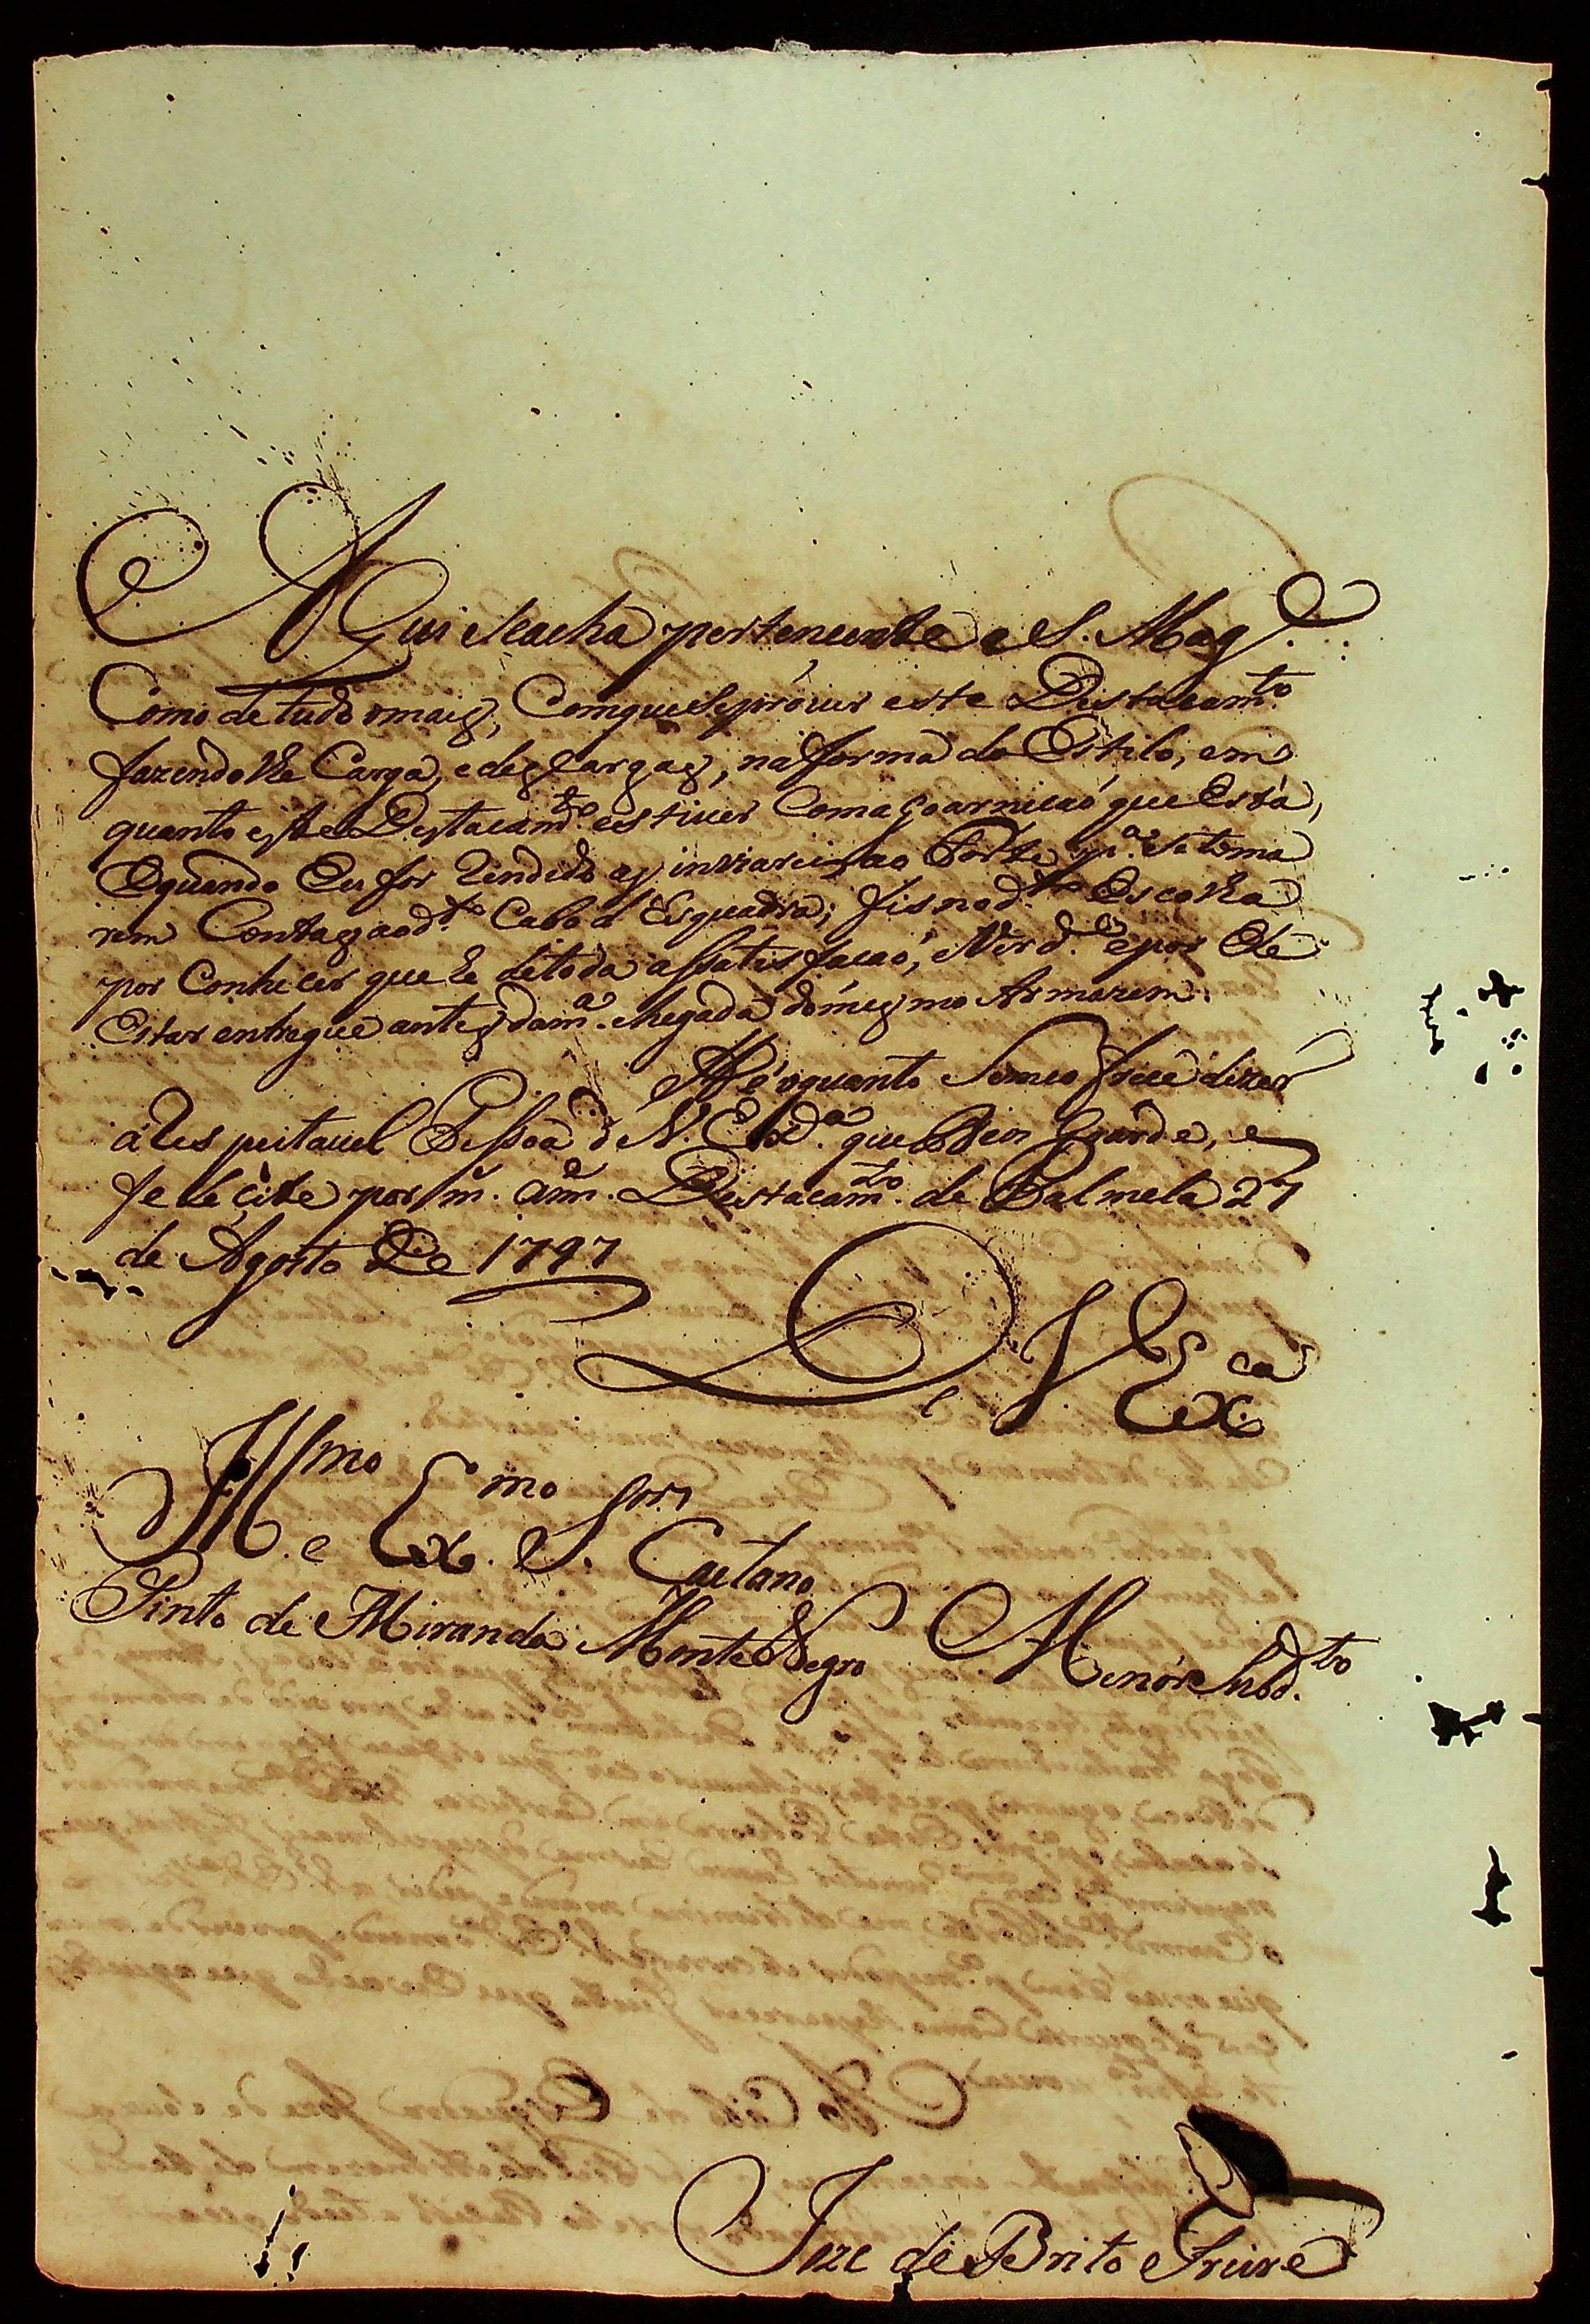 Aqui seacha pertencente a S. Mag.e
Como detudo omais, Comque Seprover este Destacam.to
fazendolhe Carga, edescargas, na forma do Estilo, em
quanto este Destacam.to estiver Comagoarnicaó que Está,
Equando Eu for Rendido as inviarei ao Forte p.a se toma
rem Contas aod.to Cabo d Esquadra; fis nod.to Escolha
por Conhecer que he detoda assatisfacaó, Verd.e epor Ele
Estar entregue antes dam.a chegada domesmo Armazem.
Hé oquanto Semeo frece dizer
áRespeitavel Pessoa d V. Ex.a que Deos Guarde, e
felecite por m. ann. Destacam.to de Palmela 27
de Agosto De 1797
De V Ex.ca
Ill.mo e Ex.mo S.or Caetano
Pinto de Miranda Monte Negro Menór Subd.to
Joze de Brito Freire